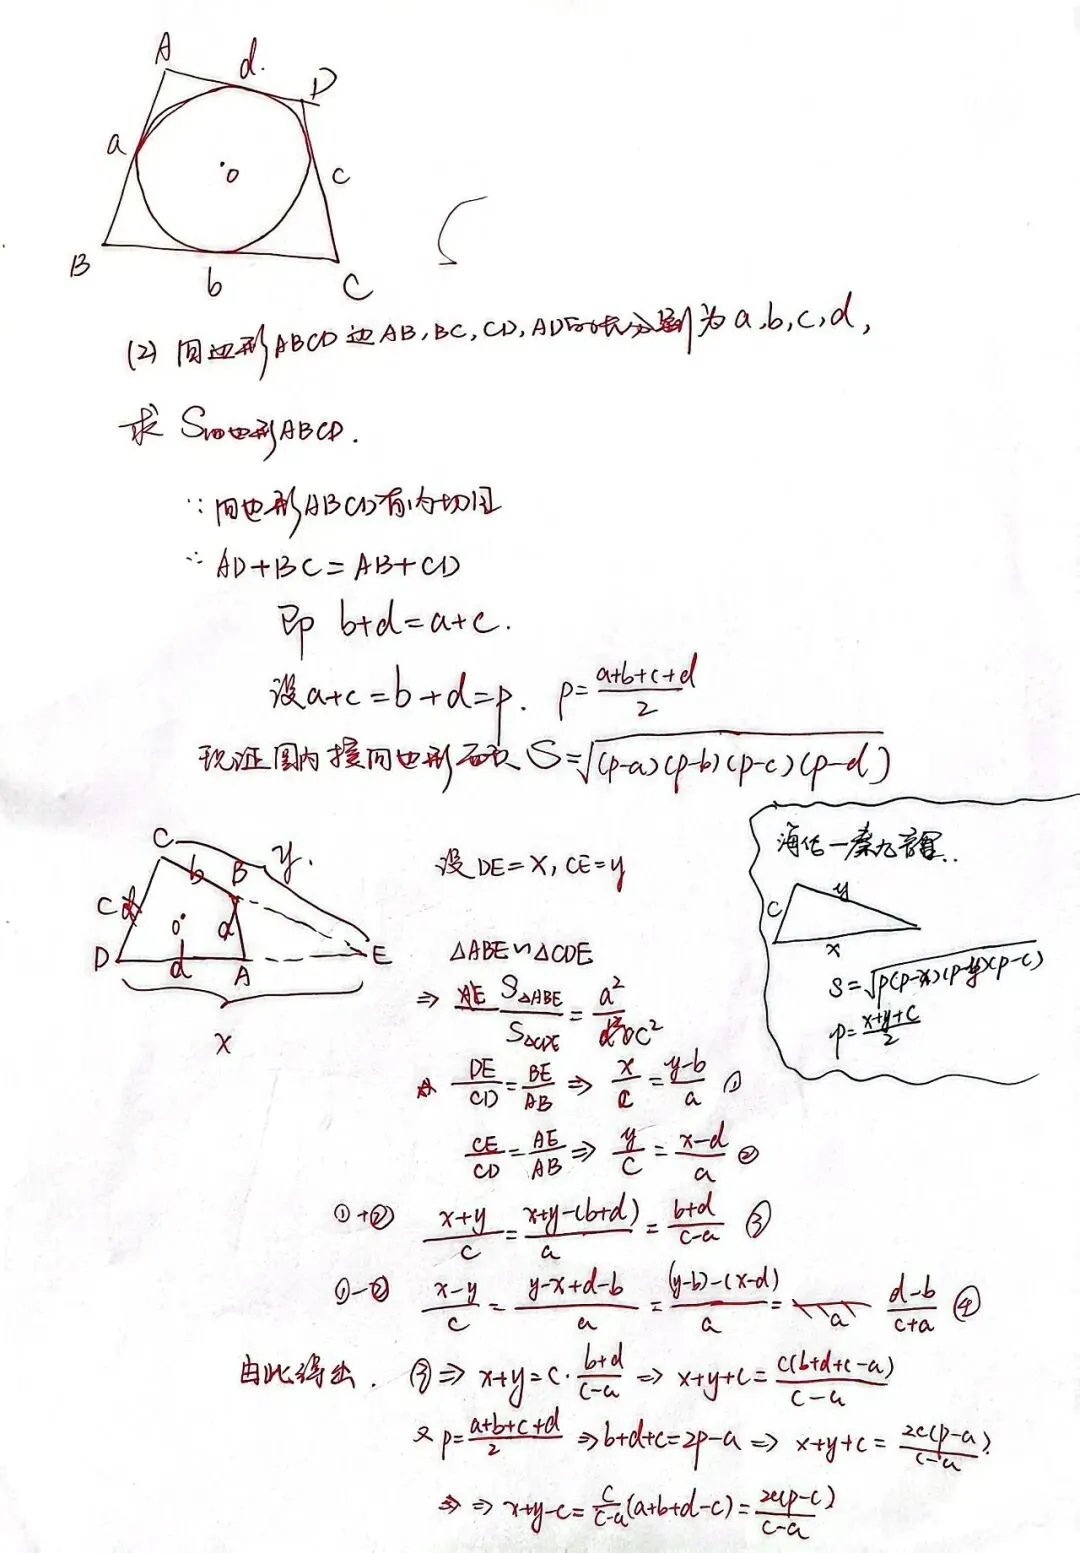 A
d.
D
a
·o
c
B
b
C
(2) 四边形ABCD边AB,BC,CD,AD的长分别为a,b,c,d,
求 S四边形ABCD.
∵ 四边形ABCD有内切圆
∴ AD+BC=AB+CD
即 b+d=a+c.
设a+c=b+d=p. p=\frac{a+b+c+d}{2}
现证圆内接四边形面积 S=\sqrt{(p-a)(p-b)(p-c)(p-d)}
海伦-秦九韶..
C
b
B
y.
设DE=x, CE=y
c
y
x
C
o
a
D
d
A
E
x
S=\sqrt{p(p-x)(p-y)(p-c)}
p=\frac{x+y+c}{2}
△ABE∽△CDE
⇒ \frac{S△ABE}{S△CDE}=\frac{a²}{c²}
\frac{DE}{CD}=\frac{BE}{AB} ⇒ \frac{x}{c}=\frac{y-b}{a} ①
\frac{CE}{CD}=\frac{AE}{AB} ⇒ \frac{y}{c}=\frac{x-d}{a} ②
①+② \frac{x+y}{c}=\frac{x+y-(b+d)}{a}=\frac{b+d}{c-a} ③
①-② \frac{x-y}{c}=\frac{y-x+d-b}{a}=\frac{(y-b)-(x-d)}{a}=\frac{d-b}{c+a} ④
由此得出. ③⇒ x+y=c·\frac{b+d}{c-a} ⇒ x+y+c=\frac{c(b+d+c-a)}{c-a}
又 p=\frac{a+b+c+d}{2} ⇒b+d+c=2p-a ⇒ x+y+c=\frac{2c(p-a)}{c-a}
⇒ ⇒ x+y-c=\frac{c}{c-a}(a+b+d-c)=\frac{2c(p-c)}{c-a}